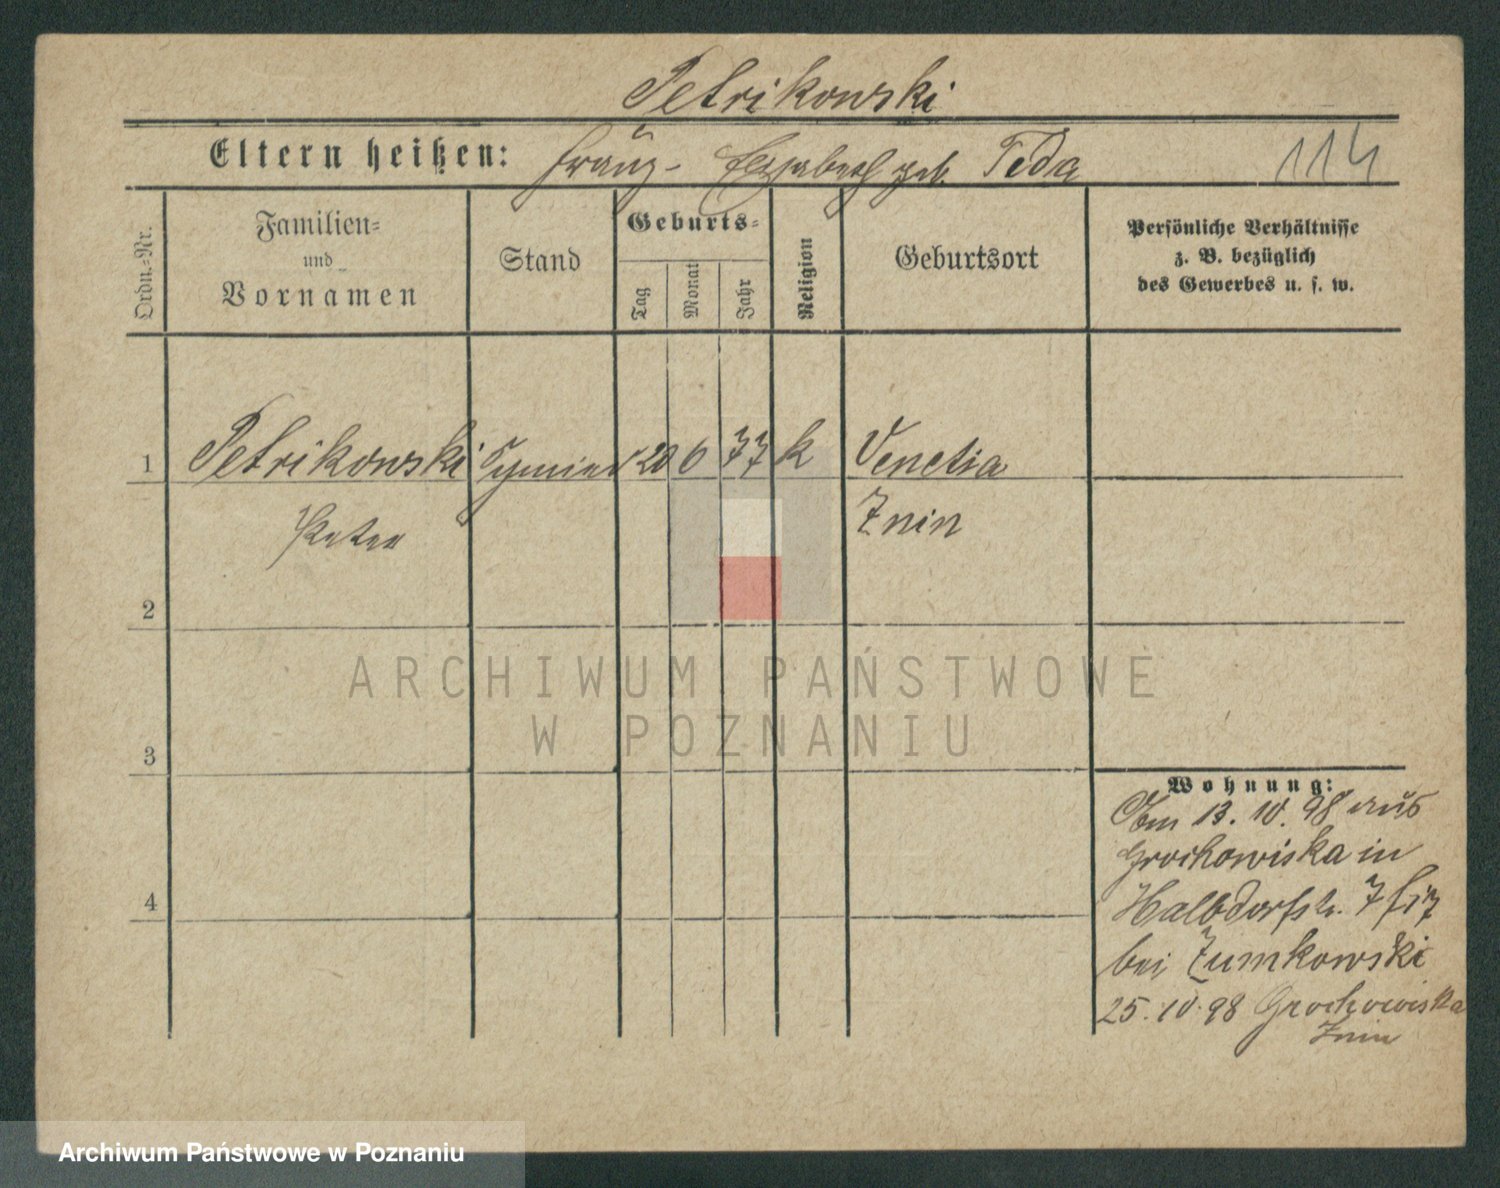 Petrikowski
Eltern heißen: Franz - Elisabeth geb. Feda
114
Ordn.-Nr.
Familien-
und
Vornamen
Stand
Geburts-
Tag
Monat
Jahr
Religion
Geburtsort
Persönliche Verhältnisse
z. B. bezüglich
des Gewerbes u. s. w.
1 Petrikowski 20 6 77 k Venetia
Peter Znin
2
3
4
ARCHIWUM PAŃSTWOWE
W POZNANIU
Wohnung:
Am 13. 10. 98 aus
Grochowiska in
Halbdorfstr. 7
bei Zumkowski
25. 10. 98 Grochowiska
Znin
Archiwum Państwowe w Poznaniu